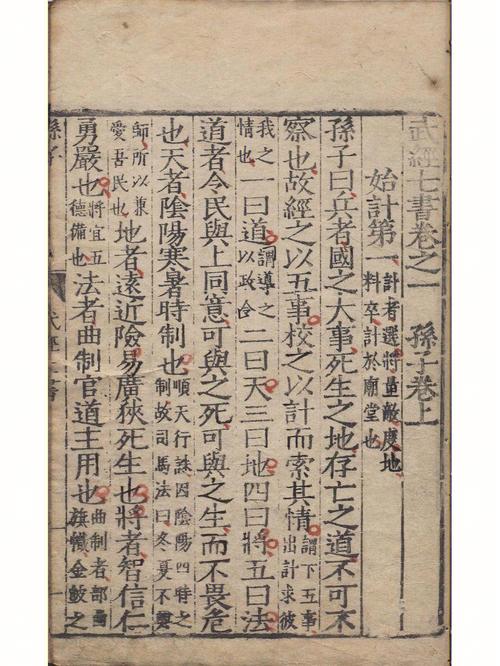 武經七書卷之一　孫子卷上
始計第一計者選將量敵度地料卒計於廟堂也
孫子曰兵者國之大事死生之地存亡之道不可不
察也故經之以五事校之以計而索其情謂下五事出計求彼
我之情也一曰道謂導之以政令二曰天三曰地四曰將五曰法
道者令民與上同意可與之死可與之生而不畏危
也天者陰陽寒暑時制也順天行誅因陰陽四時之制故司馬法曰冬夏不興
師所以兼愛吾民也地者遠近險易廣狹死生也將者智信仁
勇嚴也將宜五德備也法者曲制官道主用也曲制者部曲旗幟金鼓之
孫子